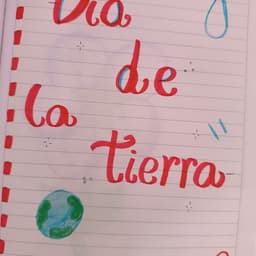 Día
de
la
tierra